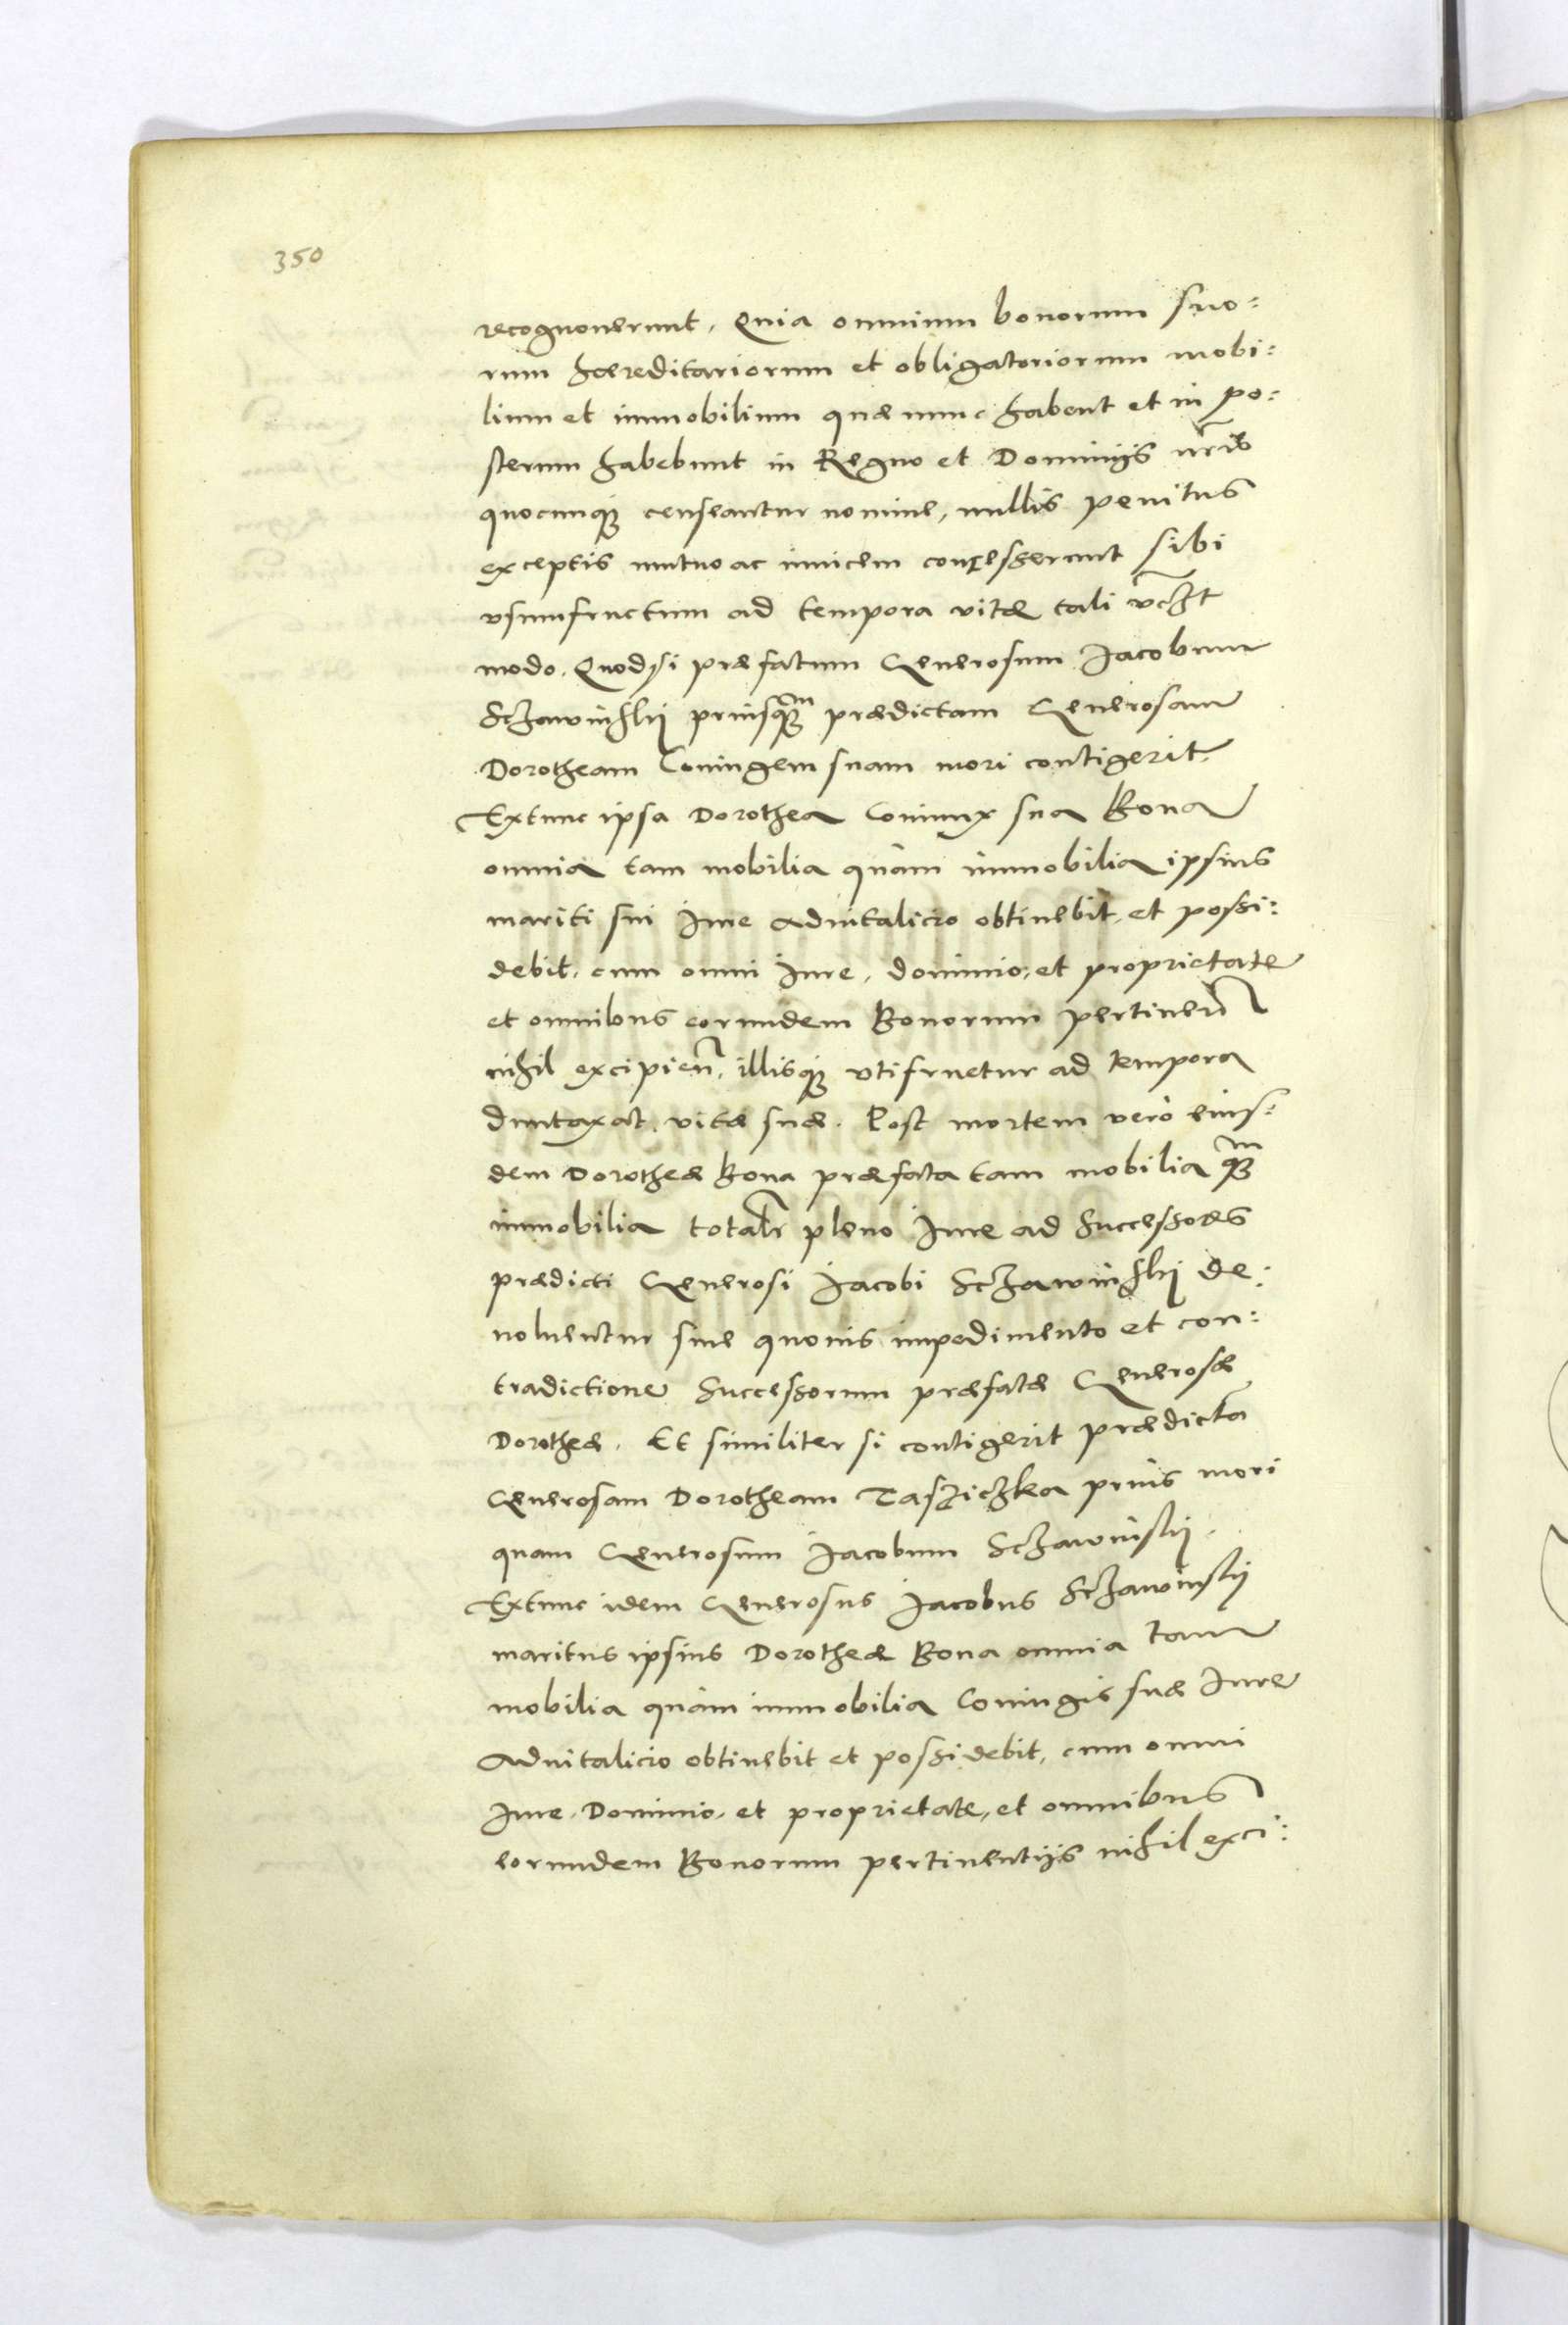 350
recognouerunt, Quia omnium bonorum suo:
rum haereditariorum et obligatoriorum mobi:
lium et immobilium quae nunc habent et in po:
sterum habebunt in Regno et Dominijs nris
quocunq3 censeantur nomine, nullis penitus
exceptis mutuo ac inuicem conçesserunt sibi
vsumfructum ad tempora vitae tali vczt
modo. Quodsi praefatum Generosum Jacobum
Sczawinskij priusq3m praedictam Generosam
Dorotheam Coniugem suam mori contigerit
Extunc ipsa Dorothea Coniunx sua Bona
omnia tam mobilia quàm immobilia ipsius
mariti sui Jure aduitalicio obtinebit, et possi:
debit, cum omni Jure, dominio, et proprietate
et omnibus eorundem Bonorum pertinen
nihil excipien, illisq3 vtifruetur ad tempora
duntaxat vitae suae. Post mortem verò eius:
dem Dorotheae Bona praefata tam mobilia q3m
immobilia totalr pleno Jure ad Successores
praedicti Generosi Jacobi Sczawinskij de:
uoluentur sine quouis impedimento et con:
tradictione Successorum praefatae Generosae
Dorotheae. Et similiter si contigerit praedicta
Generosam Dorotheam Tasziczka prius mori
quam Generosum Jacobum Sczawinskij.
Extunc idem Generosus Jacobus Sczawinskij
maritus ipsius Dorotheae Bona omnia tam
mobilia quàm immobilia Coniugis suae Jure
Aduitalicio obtinebit et possidebit, cum omni
Jure, Dominio, et proprietate, et omnibus
eorundem Bonorum pertinentijs nihil exci: